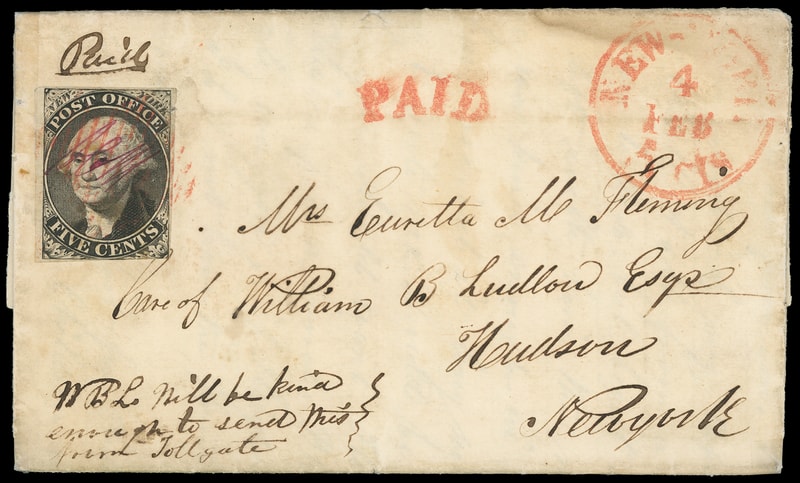 Paid
POST OFFICE
FIVE CENTS
PAID
NEW-YORK
4
FEB
5 cts
Mrs Euretta M Fleming
Care of William B Ludlow Esqr
Hudson
Newyork
W B L. Will be kind
enough to send this
down Tollgate